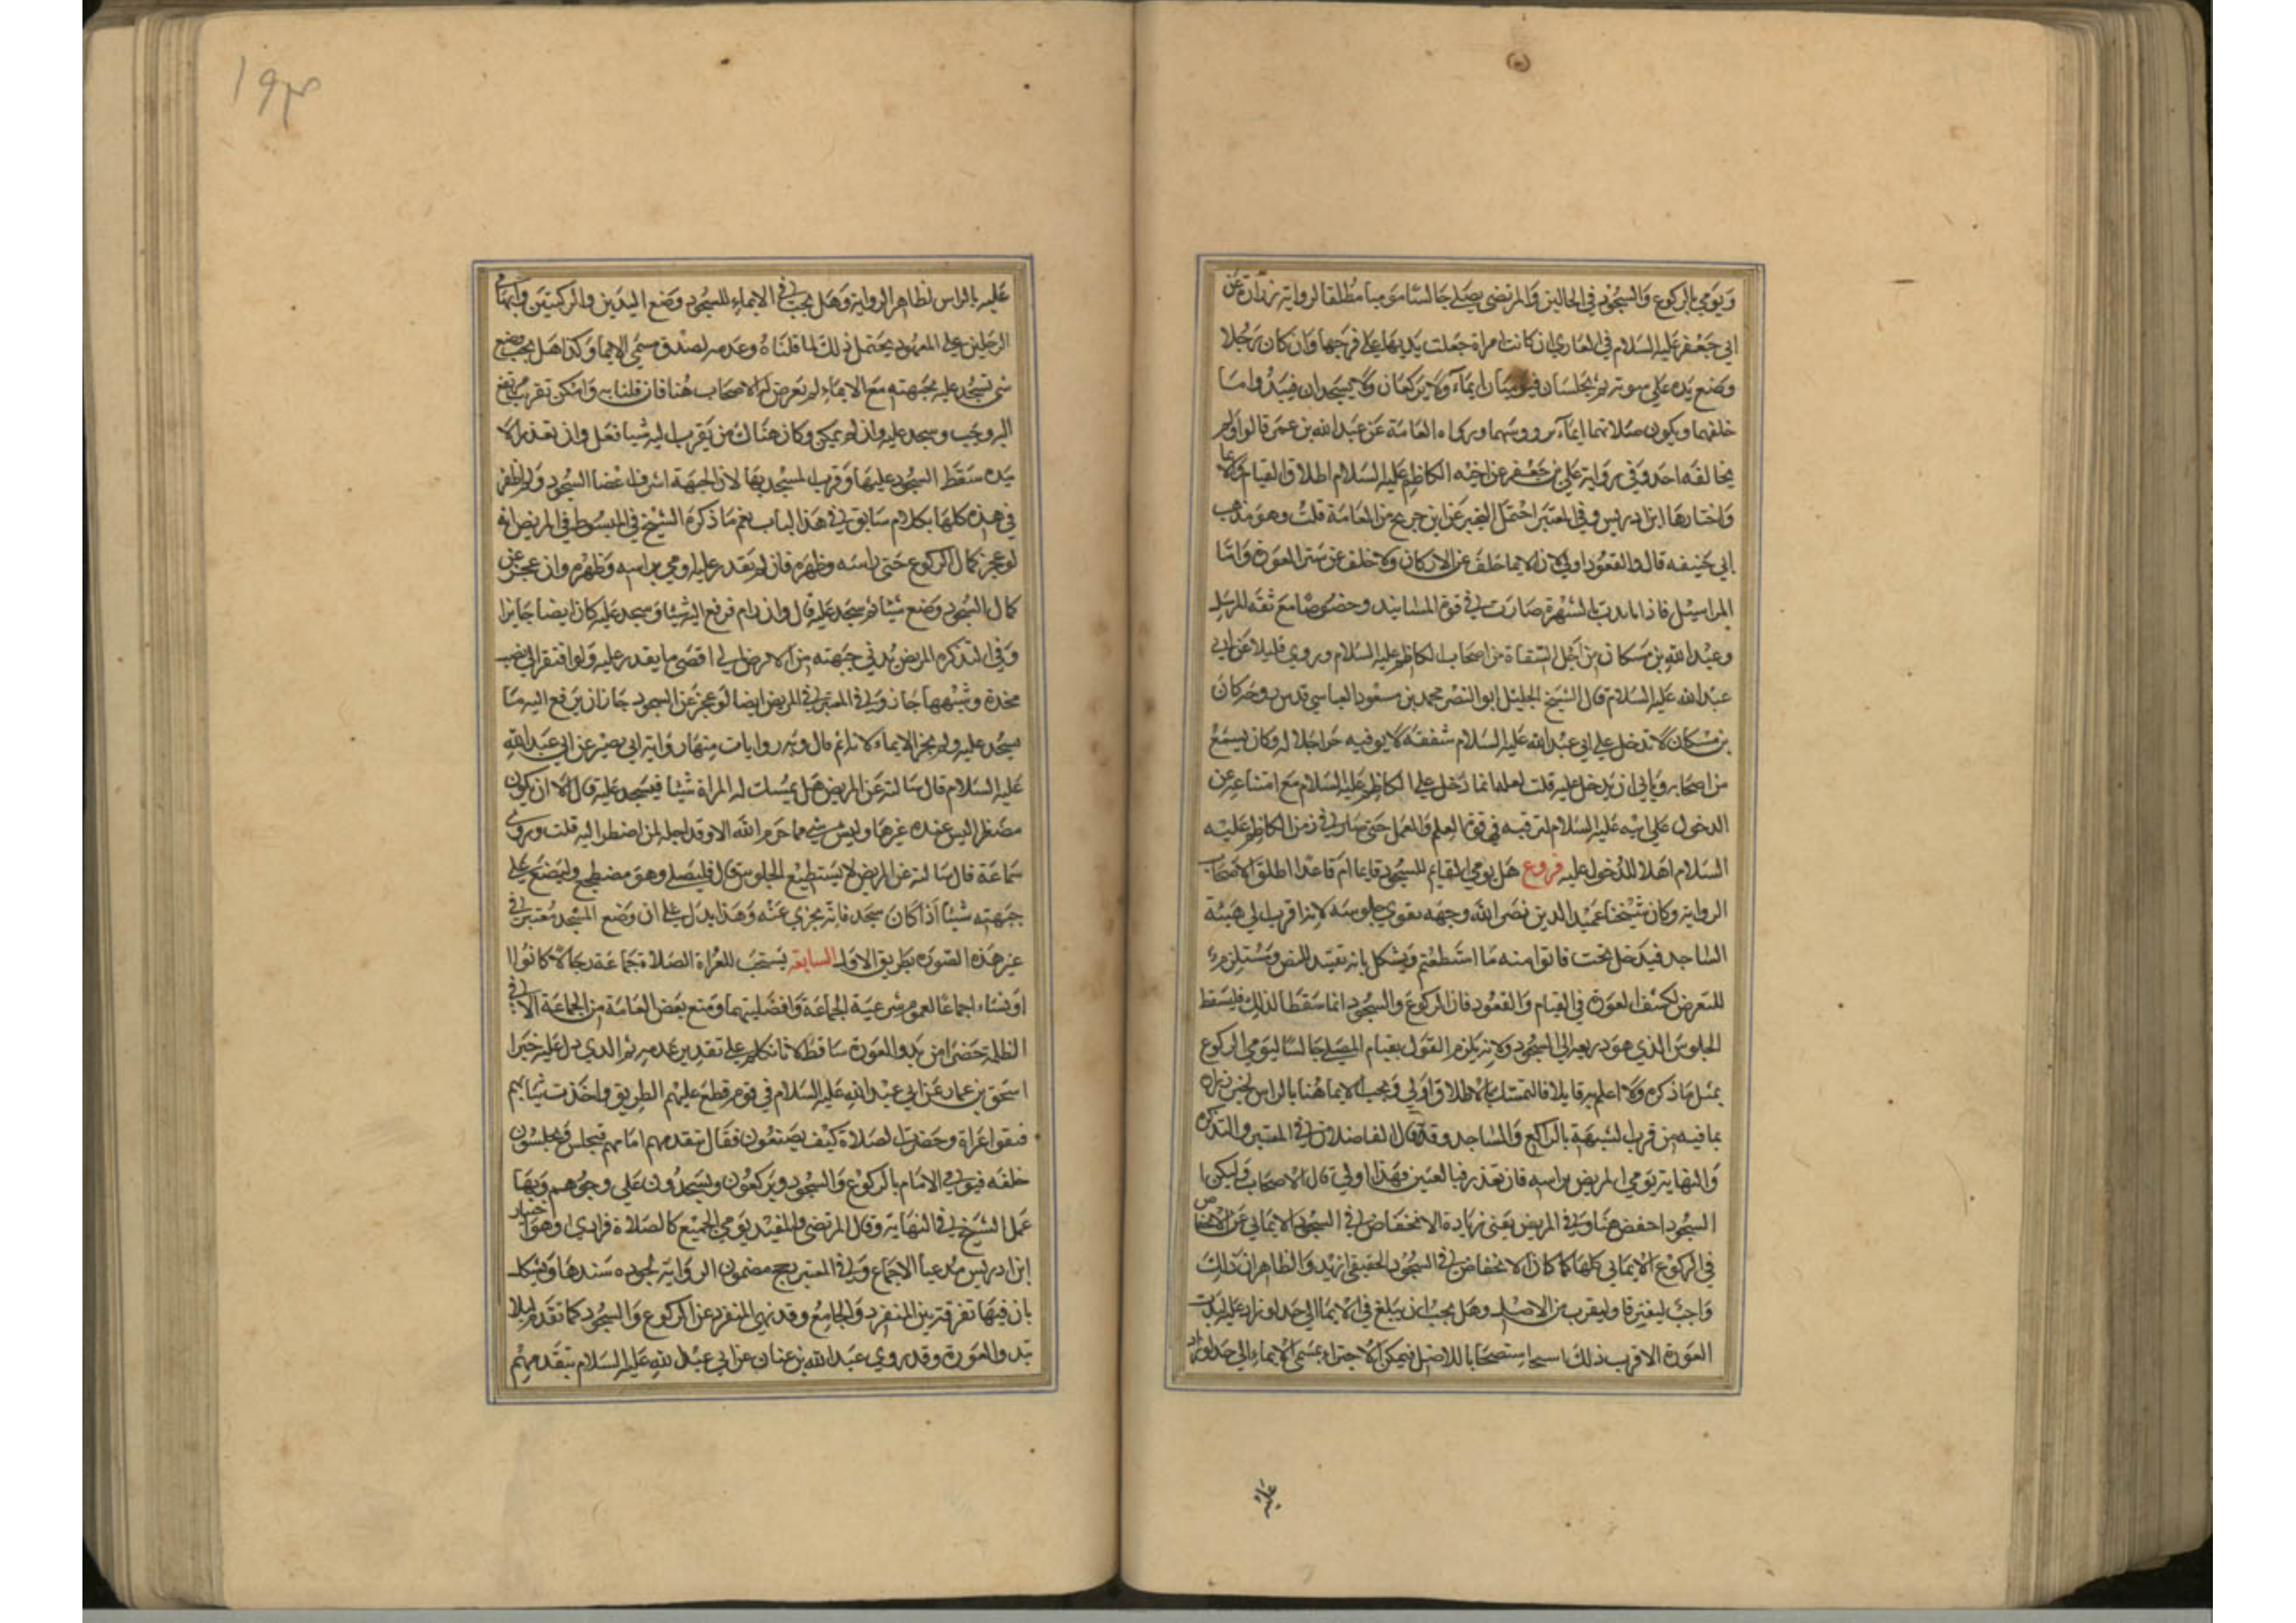 ويومي بالركوع والسجود في الحالين والمرتضى يصلي جالسا موميا مطلقا لرواية زرارة عن
ابي جعفر عليه السلام في العاري ان كانت امراة جعلت يديها على فرجها وان كان رجلا
وضع يده على سوته ثم يجلسان فيوميان ايماء ولا يركعان ولا يسجدان فيبدو ما
خلفهما ويكون صلاتهما ايماء بروسهما ورواه العامة عن عبد الله بن عمر قالوا ولم
يخالفه احد وفي رواية علي بن جعفر عن اخيه الكاظم عليه السلام اطلاق القيام
واختارها ابن ادريس وفي المعتبر احتمل التخيير عن ابن جريج من العامة قلت وهو مذهب
ابي حنيفه قال والقعود اولى لان الايما خلف عن الاركان ولا خلف عن ستر العورة واما
المراسيل فاذا تايدت بالشهرة صارت في قوة المسانيد وخصوصا مع ثقه المرسل
وعبد الله بن مسكان من اجل الثقاة من اصحاب الكاظم عليه السلام وروي قليلا عن ابي
عبد الله عليه السلام قال الشيخ الجليل ابو النضر محمد بن مسعود العياسي قدس روحه كان
بن مسكان لا يدخل على ابي عبد الله عليه السلام شفقة الا يوفيه حق اجلاله وكان يسمع
من اصحابه ويابي ان يدخل عليه قلت لعله انما دخل على الكاظم عليه السلام مع امتناعه عن
الدخول على ابيه عليه السلام لترقيه في قوة العلم والعمل حتى صار في زمن الكاظم عليه
السلام اهلا للدخول عليه فروع هل يومي القايم للسجود قايما ام قاعدا اطلق الاصحاب
الرواية وكان شيخنا عميد الدين نضر الله وجهه يقوي جلوسه لانه اقرب الى هيئة
الساجد فيدخل تحت فاتوا منه ما استطعتم ويشكل بانه تقييد للنص ومستلزم
للتعرض لكشف العورة في القيام والقعود فان الركوع والسجود انما سقطا لذلك فليسقط
الجلوس الذي هو ذريعة الى السجود ولانه يلزم القول بقيام المصلي جالسا ليومي للركوع
بمثل ما ذكره ولا اعلم به قايلا فالتمسك بالاطلاق اولى ويجب الايما هنا بالراس لخبر زرارة
بما فيه من قرب الشبهة بالراكع والساجد وقد قال الفاضلان في المعتبر والتذكره
والنهاية يومي المريض براسه فان تعذر فبالعينين فهذا اولى قال الاصحاب وليكن
السجود اخفض هنا وفي المريض يعني زيادة الانخفاض في السجود الايمائي عن الانخفاض
في الركوع الايمائي كلها كما كان الانخفاض في السجود الحقيقي ازيد والظاهر ان ذلك
واجب ليفترقا وليقرب من الاصل وهل يجب ان يبلغ في الايما الى حد لو زاد عليه لبدت
العورة الاقرب ذلك استصحابا للاصل فيمكن الاجتزاء بمسمى الايماء الى حد لو زاد
عليه
١٩٣
عليه بالراس لظاهر الرواية وهل يجب في الايماء للسجود وضع اليدين والركبتين وابهامي
الرجلين على المعهود يحتمل ذلك لما قلناه وعدمه لصدق مسمى الايما وكذا هل يجب وضع
شي تسجد عليه بجبهته مع الايماء لم يتعرض له الاصحاب هنا فان قلنا به وامكن تقريب مرتفع
اليه وجب وسجد عليه وان لم يمكن وكان هناك من يقرب اليه شيا فعل وان تعذر الا
يده سقط السجود عليها وقرب المسجد بها لان الجبهة اشرف اعضا السجود ولم اظفر
في هذه كلها بكلام سابق في هذا الباب نعم ما ذكره الشيخ في المبسوط في المريض انه
لو عجز كمال الركوع حنى راسه وظهره فان لم يقدر عليه اومي براسه وظهره وان عجز عن
كمال السجود وضع شيئا ثم سجد عليه قال وان رام فرفع اليه شيئا وسجد عليه كان ايضا جايزا
وفي التذكره المريض يدني جبهته من الارض الى اقصى ما يقدر عليه ولو افتقر الى نصب
مخدة وشبهها جاز وفي المعتبر في المريض ايضا لو عجز عن السجود جاز ان يرفع اليه ما
يسجد عليه ولم يجز الايماء قال وبه روايات منها رواية ابي بصير عن ابي عبد الله
عليه السلام قال سالته عن المريض هل تمسك له المراة شيئا فيسجد عليه قال لا الا ان يكون
مضطرا ليس عنده غيرها وليس شي مما حرم الله الا وقد احله لمن اضطر اليه قلت وروى
سماعة قال سالته عن المريض لا يستطيع الجلوس قال فليصل وهو مضطجع وليضع على
جبهته شيئا اذا كان سجد فانه يجزي عنه وهذا يدل على ان وضع المسجد معتبر في
غير هذه الصورة بطريق الاولى السابقة يستحب للعراة الصلاة جماعة رجالا كانوا
او نساء اجماعا لعموم شرعية الجماعة وافضليتها ومنع بعض العامة من الجماعة الا في
الظلمة حضرا من بدو العورة ساقط لانا نتكلم على تقدير عدمه ثم الذي دل عليه خبر
اسحق بن عمار عن ابي عبد الله عليه السلام في قوم قطع عليهم الطريق واخذت ثيابهم
فبقوا عراة وحضرت الصلاة كيف يصنعون فقال يتقدمهم امامهم فيجلس ويجلسون
خلفه فيومي الامام بالركوع والسجود ويركعون ويسجدون على وجوههم وبها
عمل الشيخ في النهاية وقال المرتضى والمفيد يومي الجميع كالصلاة فرادى وهو اختيار
ابن ادريس مدعيا الاجماع وفي المعتبر رجح مضمون الرواية لجوده سندها ويشكل
بان فيها تفرقة بين المنفرد والجامع وقد نهي المنفرد عن الركوع والسجود كما تقدم لئلا
تبدو العورة وقد روي عبد الله بن سنان عن ابي عبد الله عليه السلام يتقدمهم